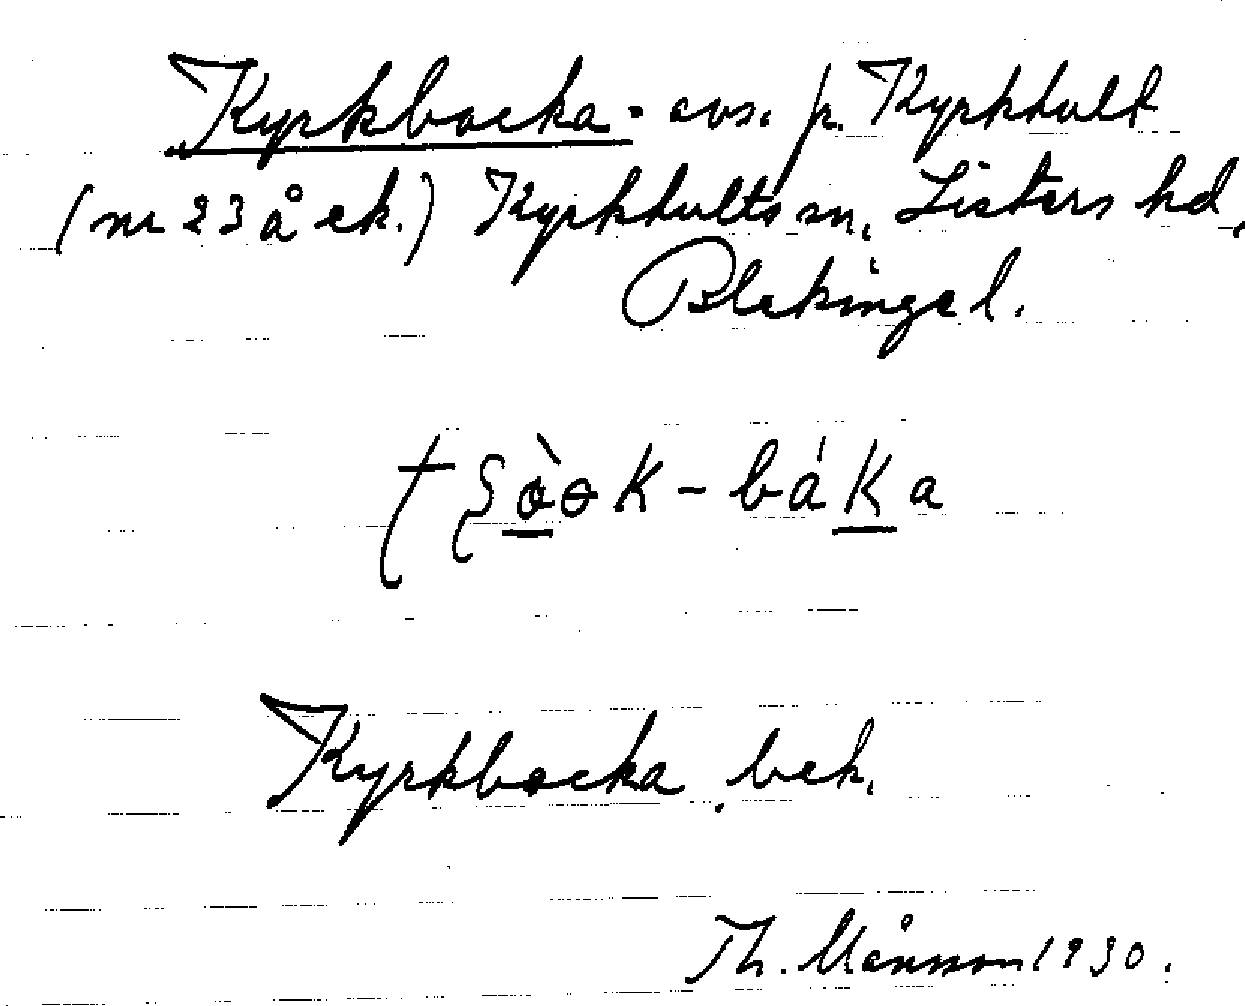 Kyrkbacka - avs. fr. Kyrkhult
(nr 23 å ek.) Kyrkhults sn, Listers hd,
Blekinge l.
Kyrkbacka, bek.
Th. Månsson 1930.